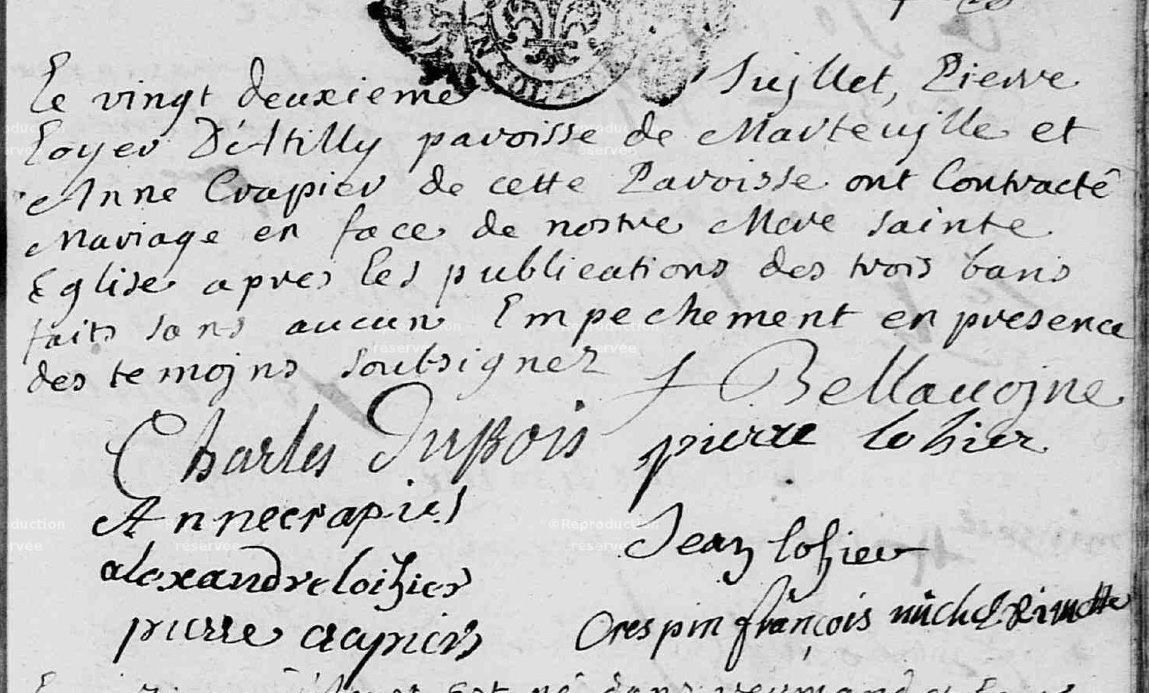 Le vingt deuxieme Jujllet, Pierre
Loyer D'Attilly paroisse de Martevjlle et
Anne Crapier de cette Paroisse ont Contracté
Mariage en face de nostre Mere sainte
Eglise apres les publications des trois bans
faits sans aucun Empechement en presence
des temojns soubsignez f Bellavojne
Charles DuBois pierre lohier
Anne crapier
Jean lohier
alexandre loihier
pierre crapier Crespin françois michel